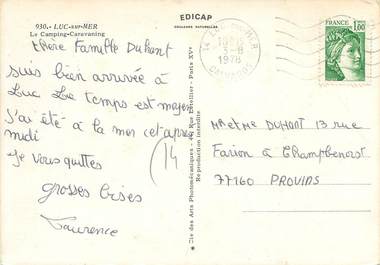 930. - LUC-sur-MER
Le Camping-Caravaning
EDICAP
COULEURS NATURELLES
chère Famille Duhant
suis bien arrivée à
Luc Le temps est moyen
J'ai été à la mer cet aprè
midi
Je vous quittes
grosses bises
Laurence
(14
Cie des Arts Photomécaniques - Paris XVe
Reproduction interdite
14 LUC S/ MER
1978
CALVADOS
FRANCE
1,00
Mr et Me DUHANT 13 rue
Farion à Champbenoist
77160 PROVINS